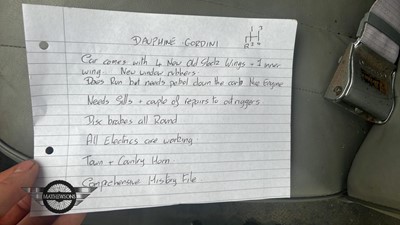 DAUPHINE GORDINI
Car comes with 4 New Old Stock Wings + 1 inner
wing. New window rubbers.
Does Run but needs petrol down the carb the Engine
Needs Sills + couple of repairs to outriggers
Disc brakes all Round
All Electrics are working
Town + Country Horn
Comprehensive History File
MATHEWSONS